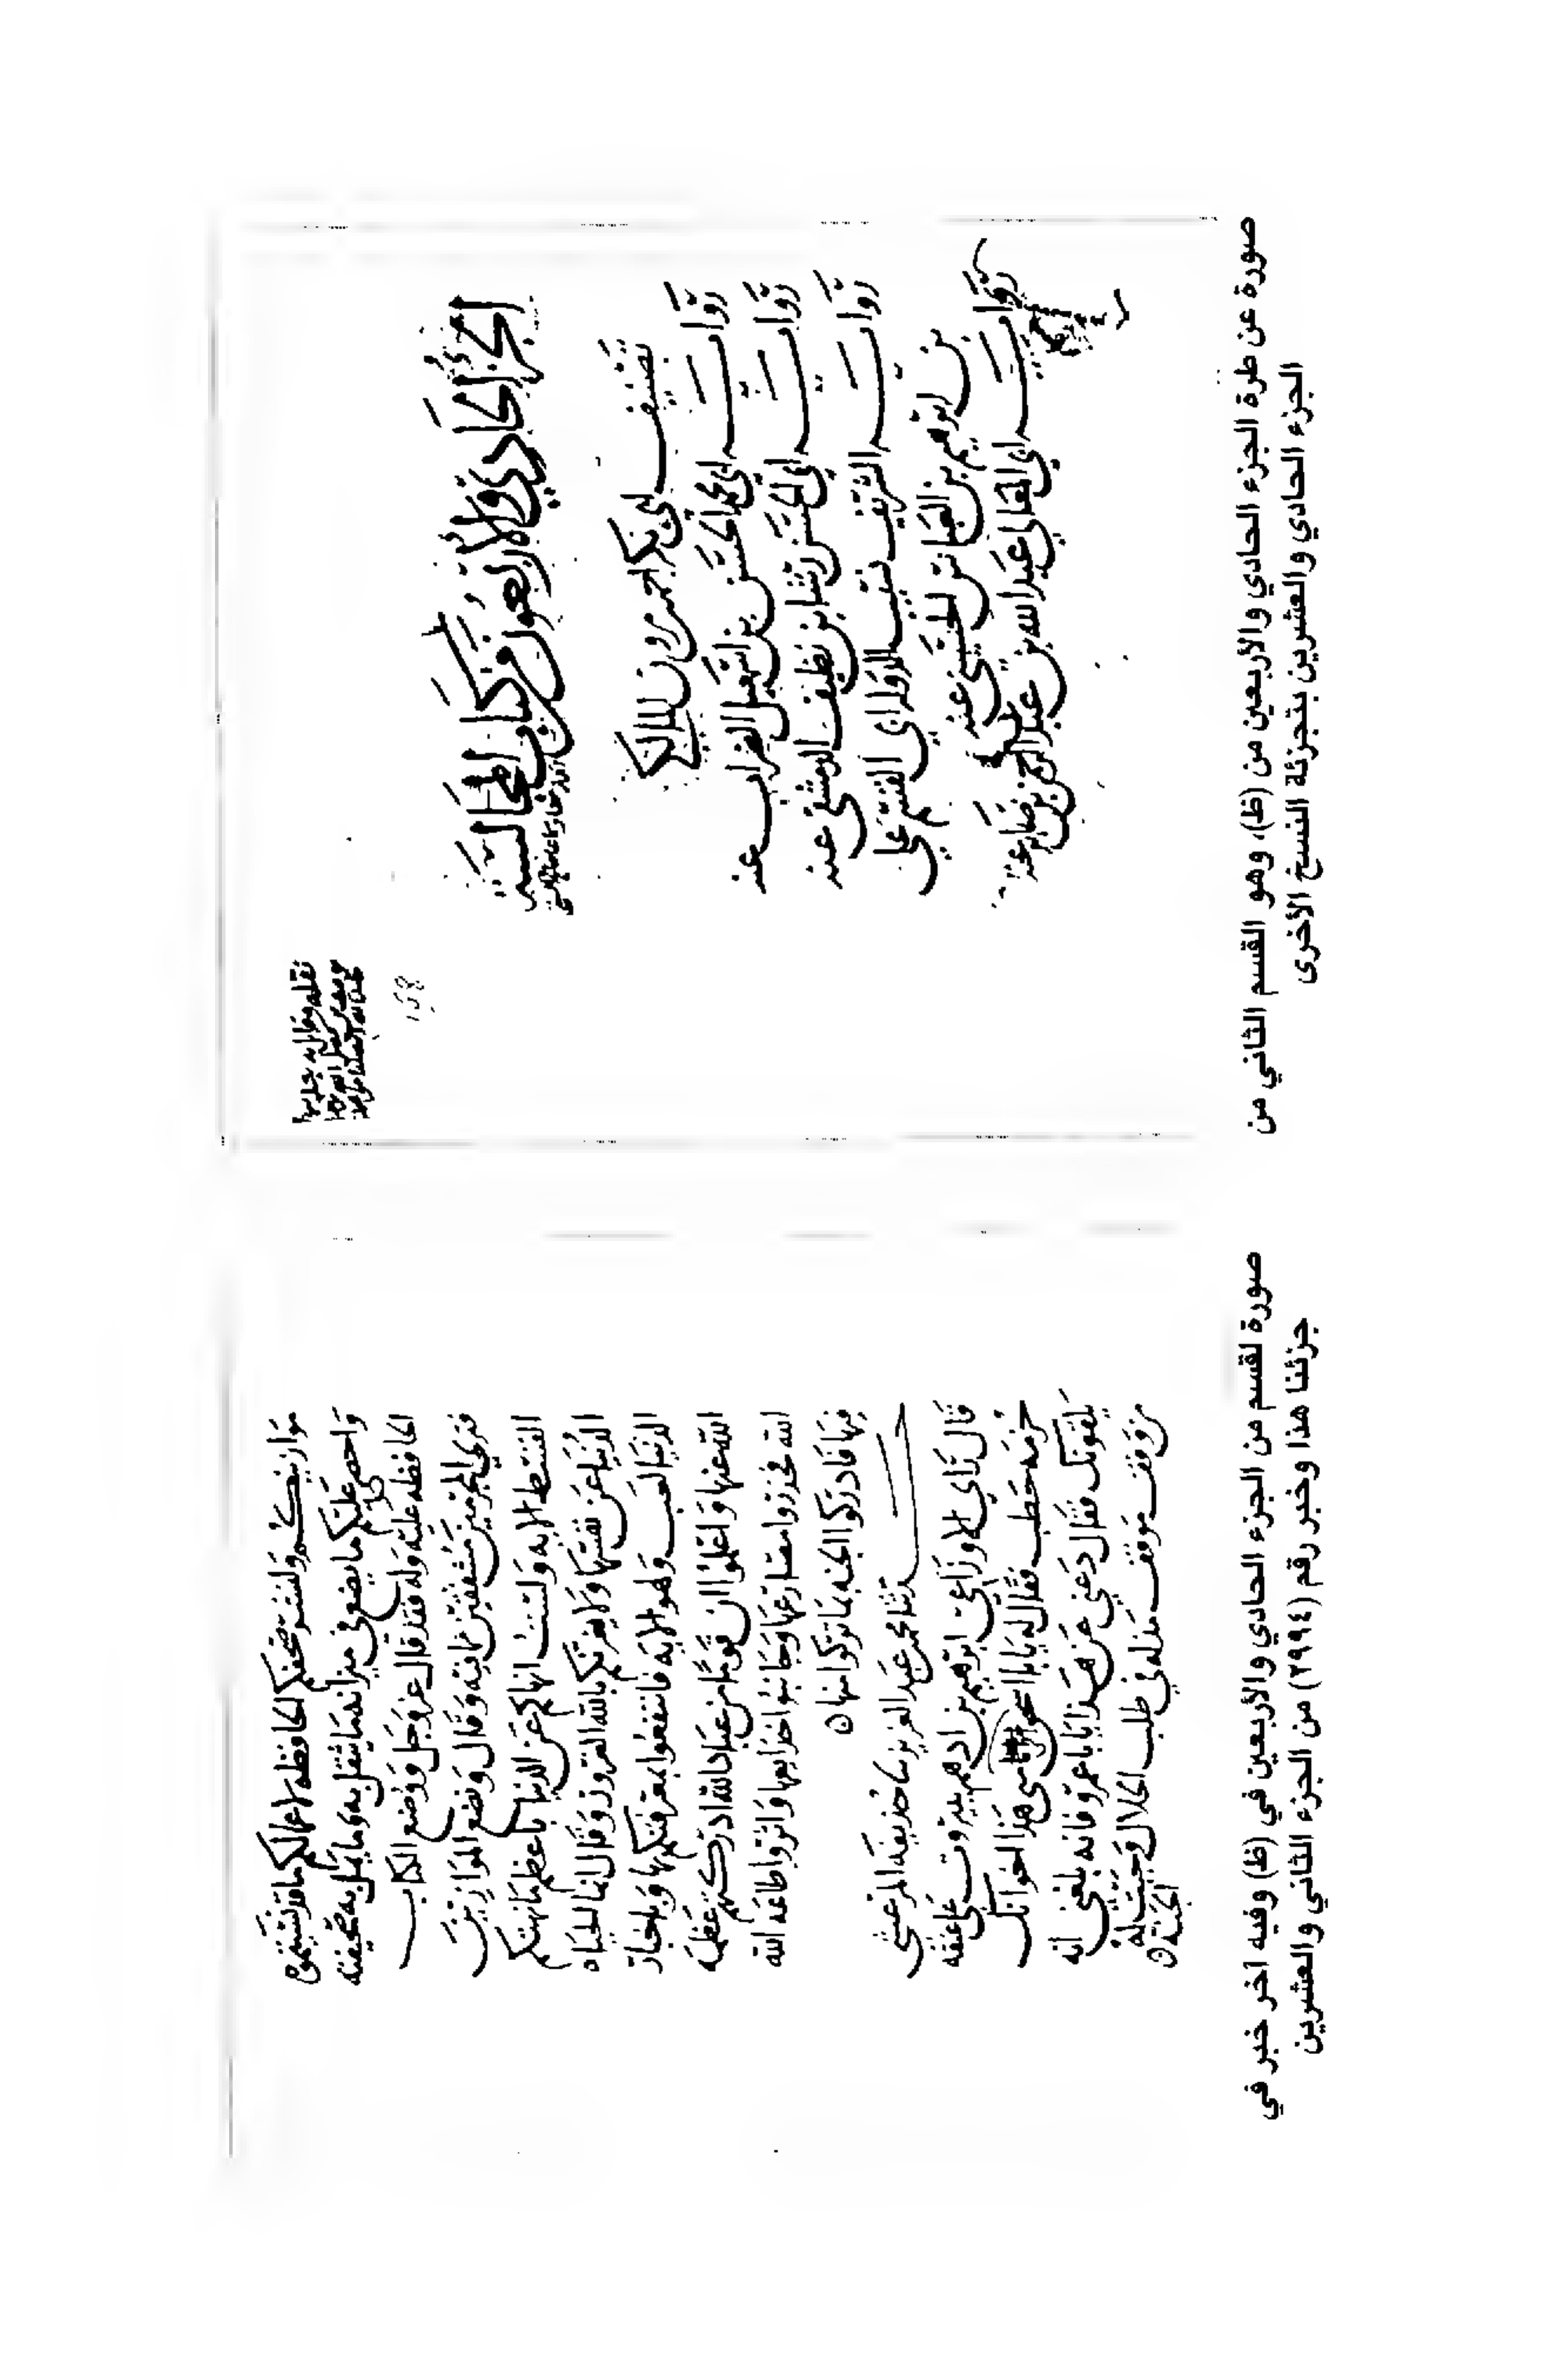 الجزء الحادي والأربعون من كتاب المجالسة
تصنيف
ابي بكر احمد بن مروان المالكي
رواية
ابي محمد الحسن بن اسمعيل الضراب عنه
رواية
ابي الحسن رشا بن نظيف الدمشقي عنه
رواية
الشريف نسيب الدولة ابي القسم علي
بن ابرهيم بن العباس الحسيني عنه
رواية
ابي المعالي عبد الله بن عبد الرحمن بن صابر عنه
صورة عن طرة الجزء الحادي والأربعين من (ظ)، وهو القسم الثاني من
الجزء الحادي والعشرين بتجزئة النسخ الأخرى
موازينكم ولتستوضحكم الحافظه لاعمالكم ما قد
واحصى عليكم ما يضع في ميزانه مما يثقل به وما يمل به صحيفته
الحافظه عليه وله فقد قال عز وجل ووضع الكتاب
فترى المجرمين مشفقين مما فيه وقال ونضع الموازين
القسط الايه ولست انهاكم عن الدنيا باعظم مما نهتكم
الدنيا عن نفسها ولا يغرنكم بالله الغرور وقال انما الحياه
الدنيا لعب ولهو الايه فانتفعوا بمعرفتكم بها وباخبار
الله عنها واعلموا ان قوما من عباد الله ادركتهم عظمه
الله فحذروا مصارعها وجانبوا خدايعها واثروا طاعه الله
فيها فادركوا الجنه بما تركوا منها
حدثنا محمد بن عبد العزيز نا حذيفه المرعشي
قال راى الاوزاعي ابرهيم بن ادهم ببيروت على عنقه
حزمه حطب فقال له يابا اسحق اي شى هذا اخوانك
يكفونك فقال دعني عن هذا يابا عمرو فانه بلغني انه
من وقف موقف مذله في طلب الحلال وجبت له
الجنة
صورة لقسم من الجزء الحادي والأربعين في (ظ) وفيه آخر خبر في
جزئنا هذا وخبر رقم (٢٩٩٤) من الجزء الثاني والعشرين